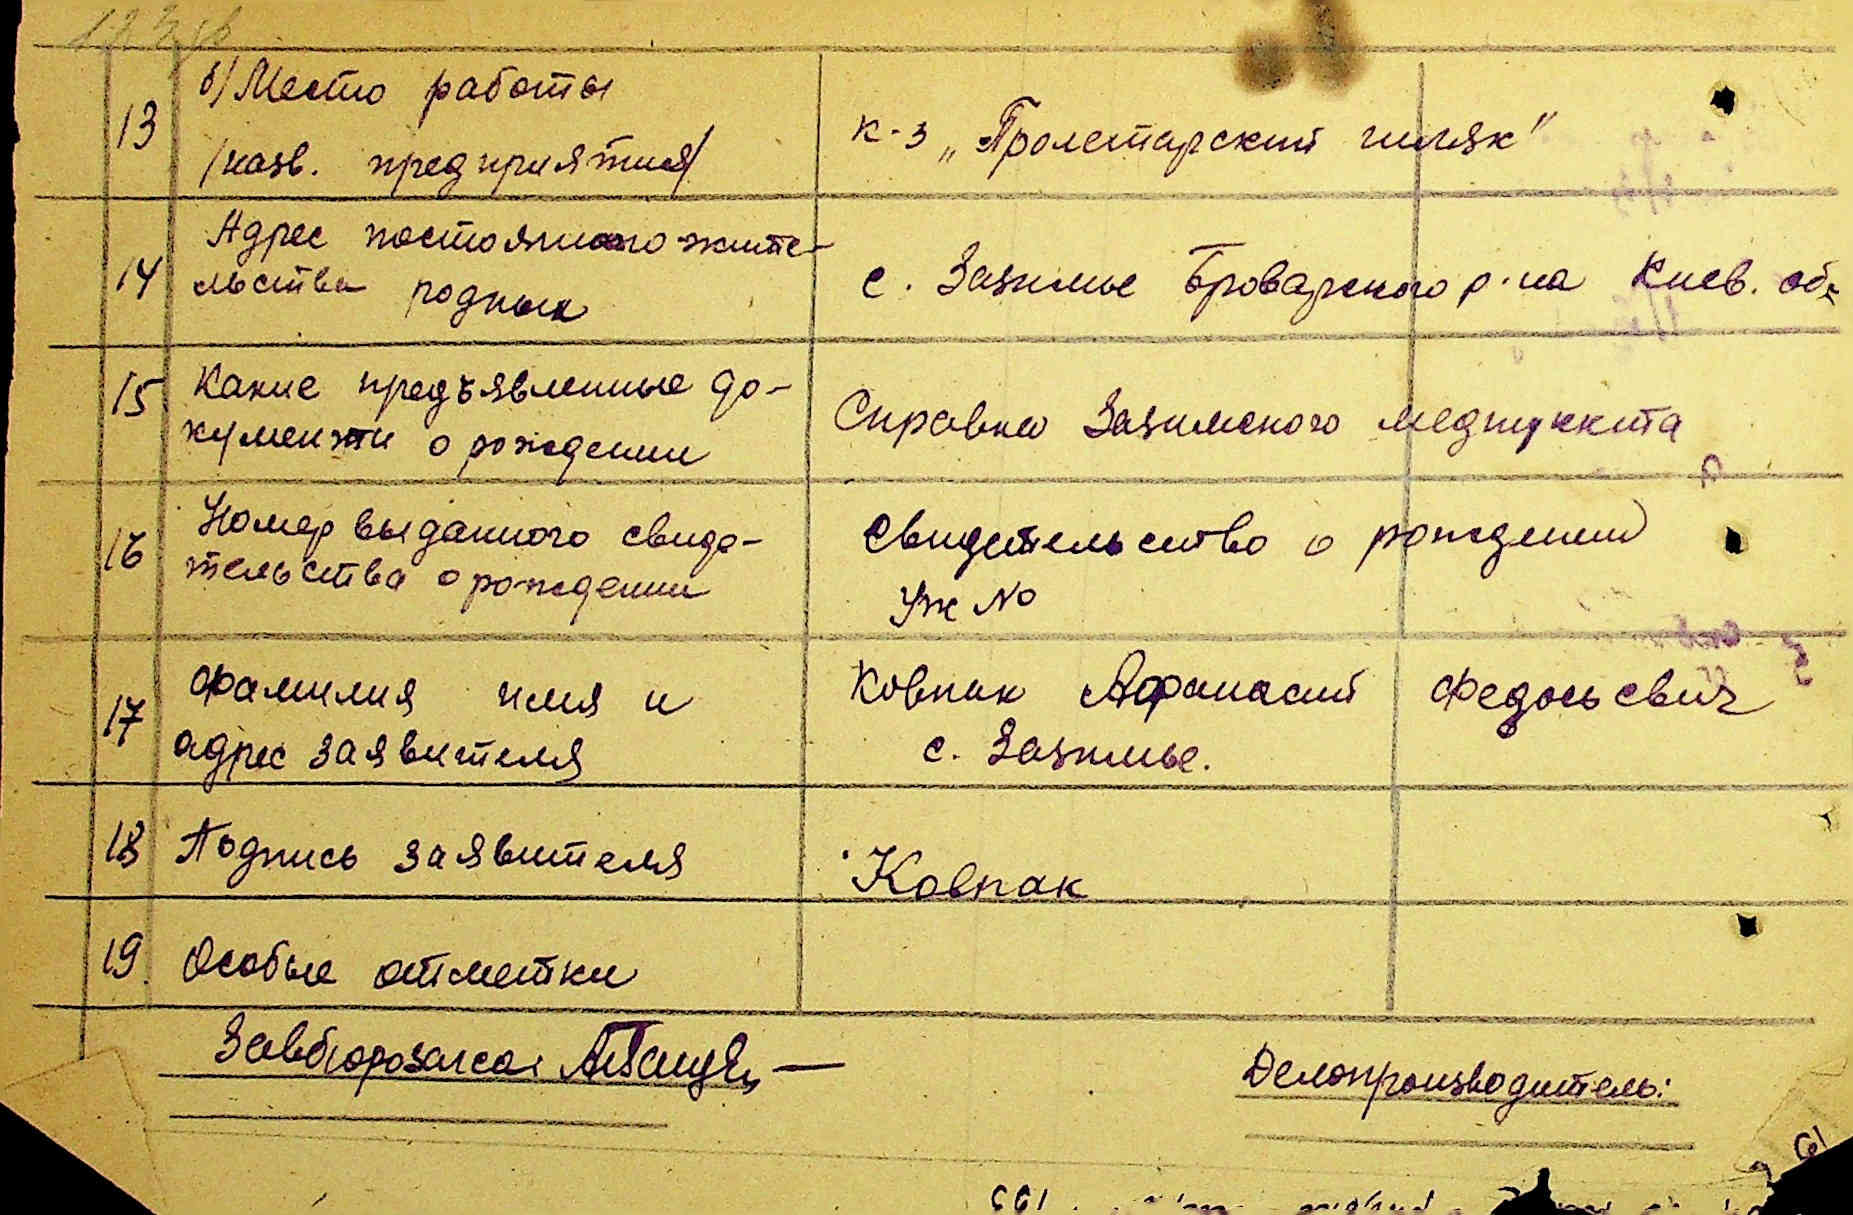 13
б/ Место работы
/назв. предприятия/
к-з „Пролетарский шлях"
14
Адрес постоянного жите-
льства родных
с. Зазимье Броварского р-на Киев. об.
15
Какие предъявленные до-
кументи о рождении
Справка Зазимского медпункта
16
Номер выданного свиде-
тельства о рождении
Свидетельство о рождении
УЖ №
17
Фамилия имя и
адрес заявителя
Ковпак Афанасий Федосьевич
с. Зазимье.
18
Подпись заявителя
Ковпак
19.
Особые отметки
Завбюрозагса:
Делопроизводитель: